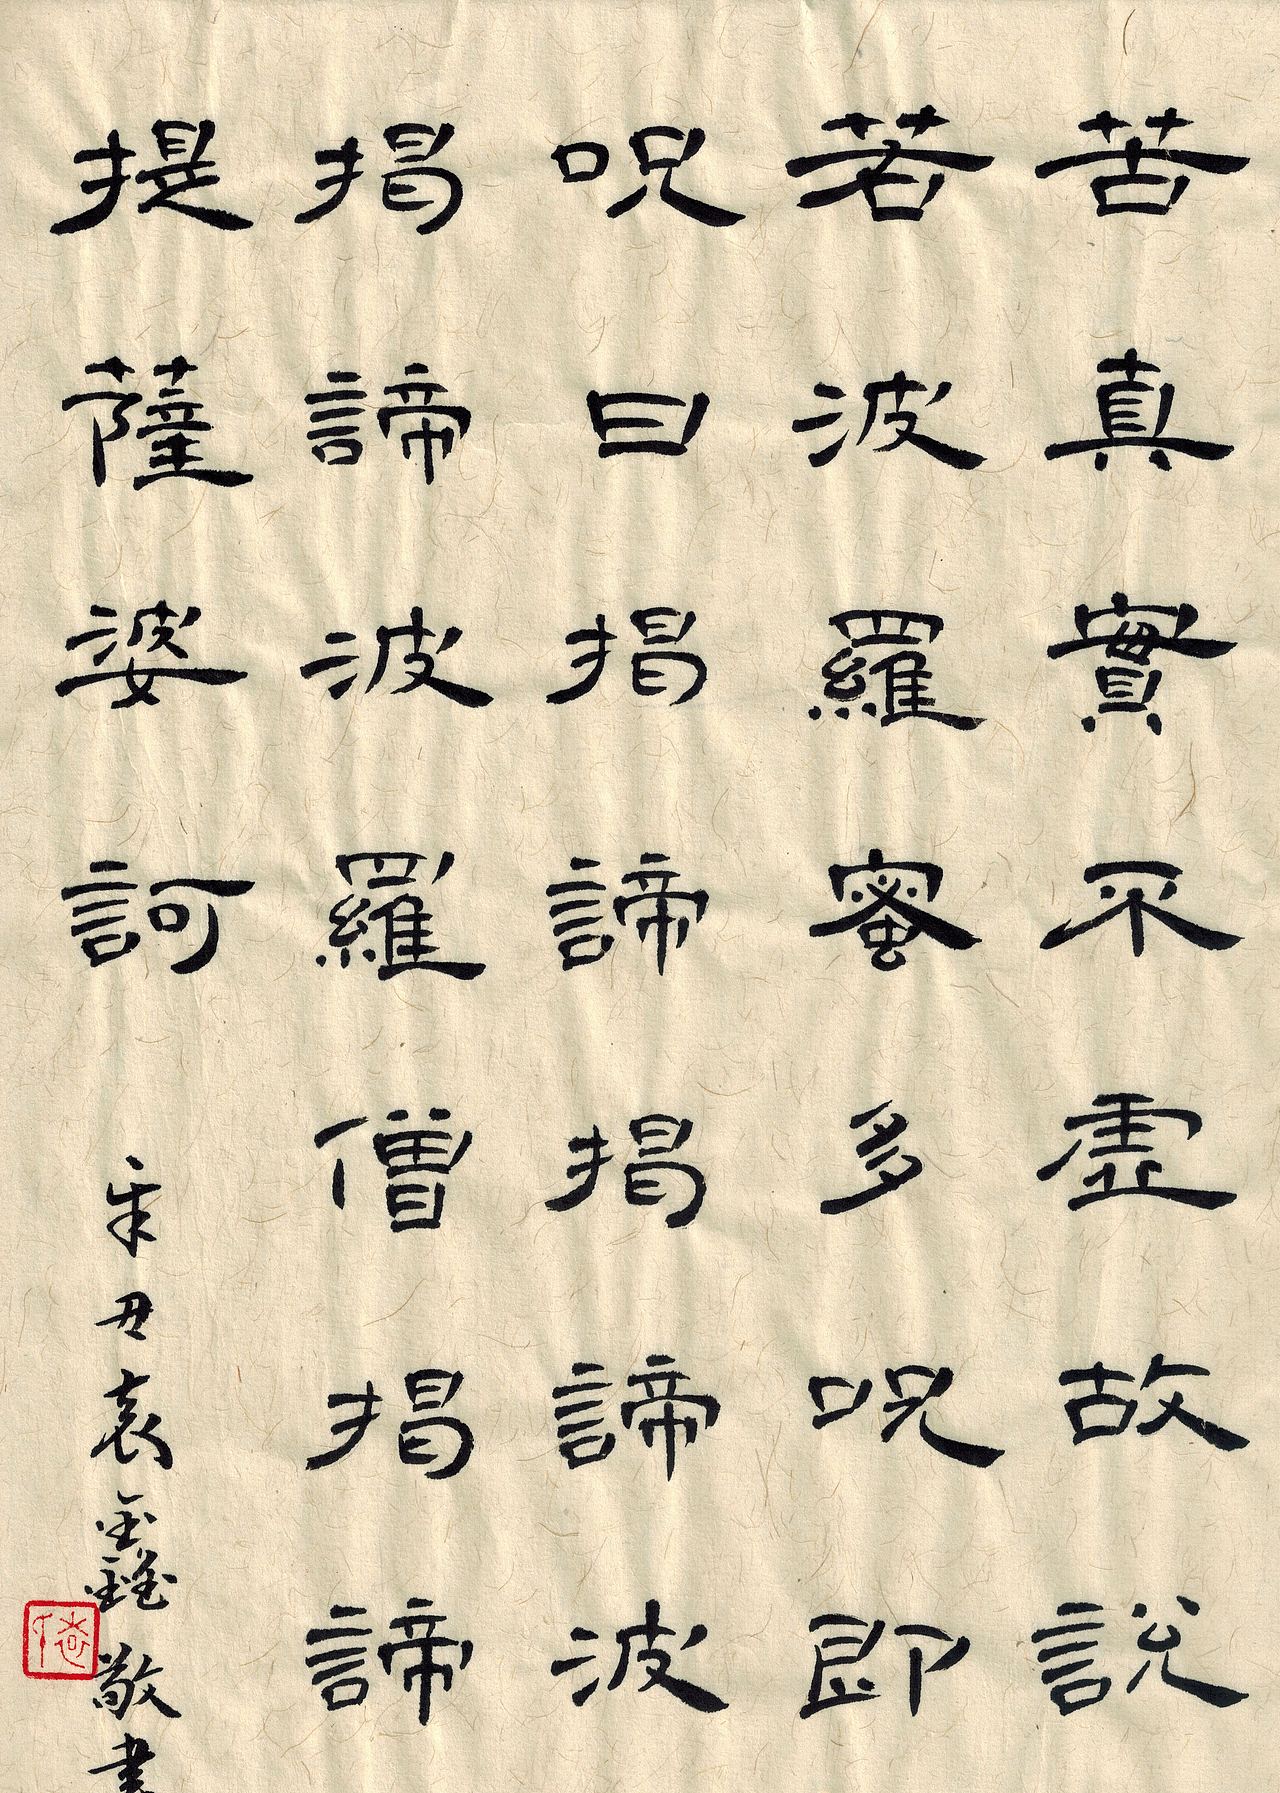 苦真實不虛故說
若波羅蜜多呪即
呪曰揭諦揭諦波
揭諦波羅僧揭諦
提薩婆訶
辛丑袁鑫敬書